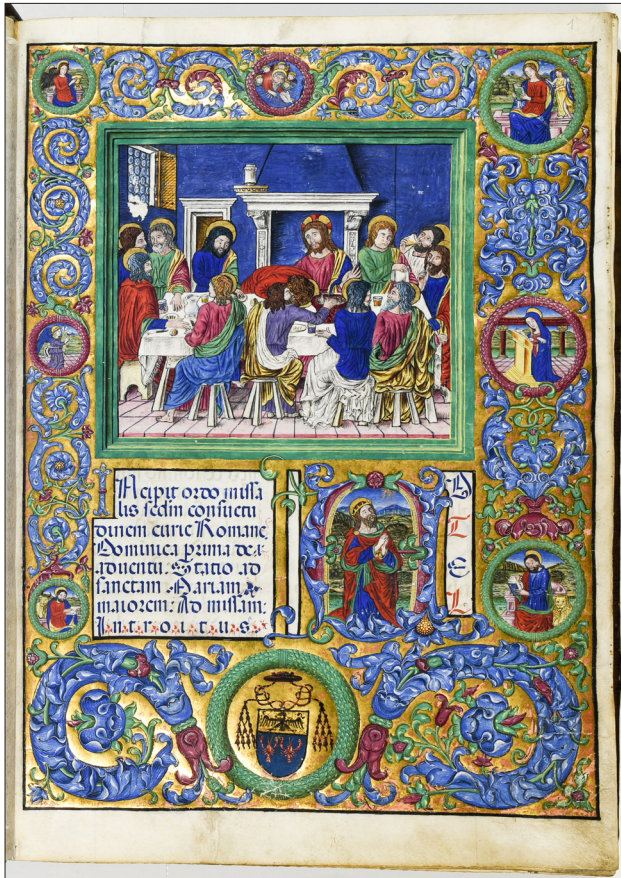 INcipit ordo missa
lis scd'm consuetu
dinem curie Romane.
Dominica prima de
aduentu. Statio ad
sanctam Mariam
maiorem: Ad missam:
Introitus.
A D
T
E
L